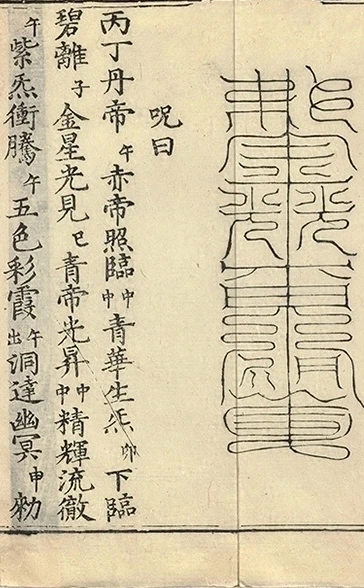 呪曰
丙丁丹帝午赤帝照臨中中青華生炁卯下臨
碧離子金星光見巳青帝光昇中中精輝流徹
午紫炁衝騰午五色彩霞午出洞達幽冥申勑